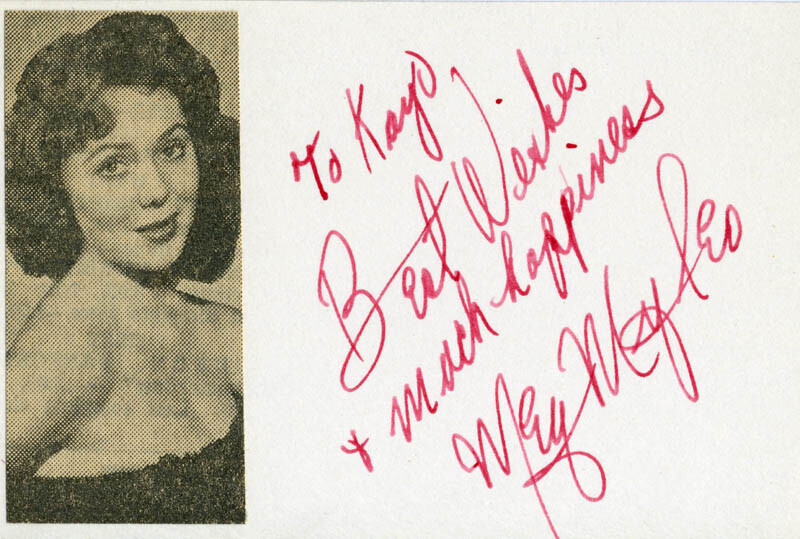 To Kayo
Best Wishes
& much happiness
Meg Myles